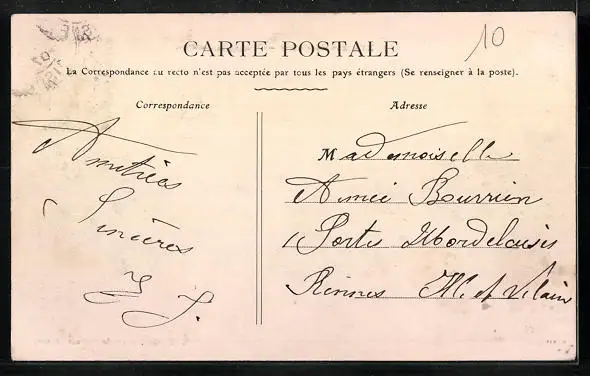 10
CARTE POSTALE
La Correspondance au recto n'est pas acceptée par tous les pays étrangers (Se renseigner à la poste).
Correspondance
Adresse
Amitiés
Sincères
Mademoiselle
Aimée Bourrien
1 Portes Mordelaises
Rennes Ille et Vilaine